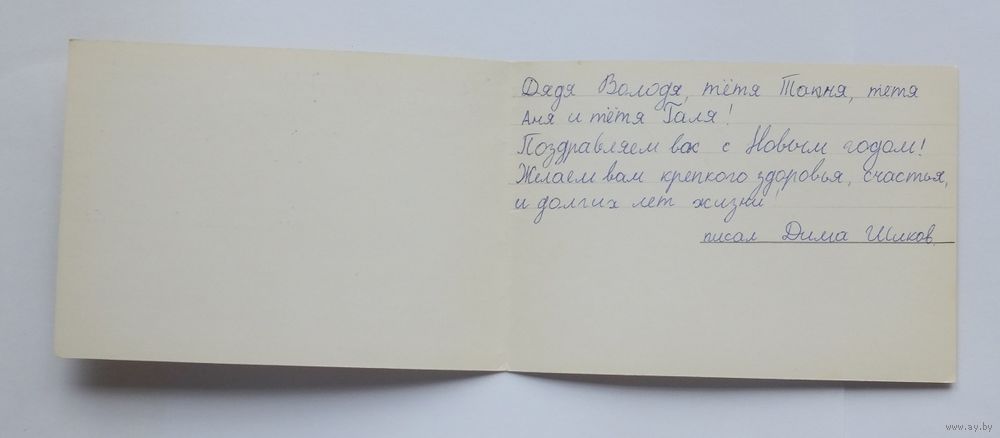 Дядя Володя, тётя Таня, тетя
Аня и тётя Галя!
Поздравляем вас с Новым годом!
Желаем вам крепкого здоровья, счастья,
и долгих лет жизни
писал Дима Шиков.
www.ay.by